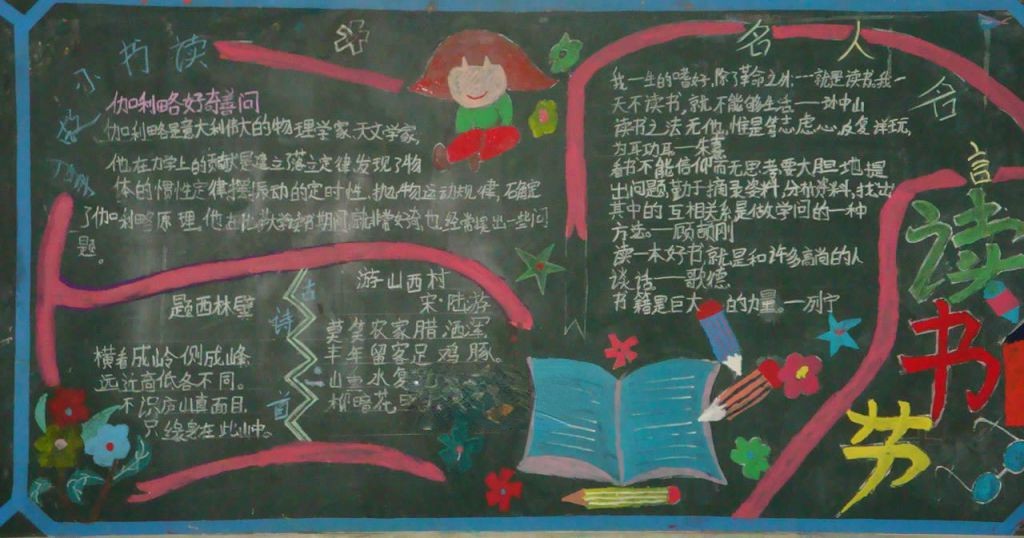 读书
伽利略好奇善问
伽利略是意大利伟大的物理学家、天文学家,
他在力学上的贡献是建立落立定律发现了物
体的惯性定律,摆振动的定时性,抛物运动规律,确定
了伽利略原理,他在比萨大学读书期间,就非常好奇,也经常提出一些问
题。
古诗二首
题西林壁
横看成岭侧成峰,
远近高低各不同。
不识庐山真面目,
只缘身在此山中。
游山西村
宋·陆游
莫笑农家腊酒浑
丰年留客足鸡豚。
山重水复
柳暗花
名人名言
我一生的嗜好,除了革命之外……就是读书,我一
天不读书,就不能够生活——孙中山
读书之法无他,惟是笃志虑心,反复祥玩,
为耳功耳——朱熹
看书不能信仰而无思考要大胆地提
出问题,勤于摘录资料,分析资料,找出
其中的互相关系是做学问的一种
方法。——顾颉刚
读一本好书,就是和许多高尚的人
谈话——歌德
书籍是巨大的力量。——列宁
读书节